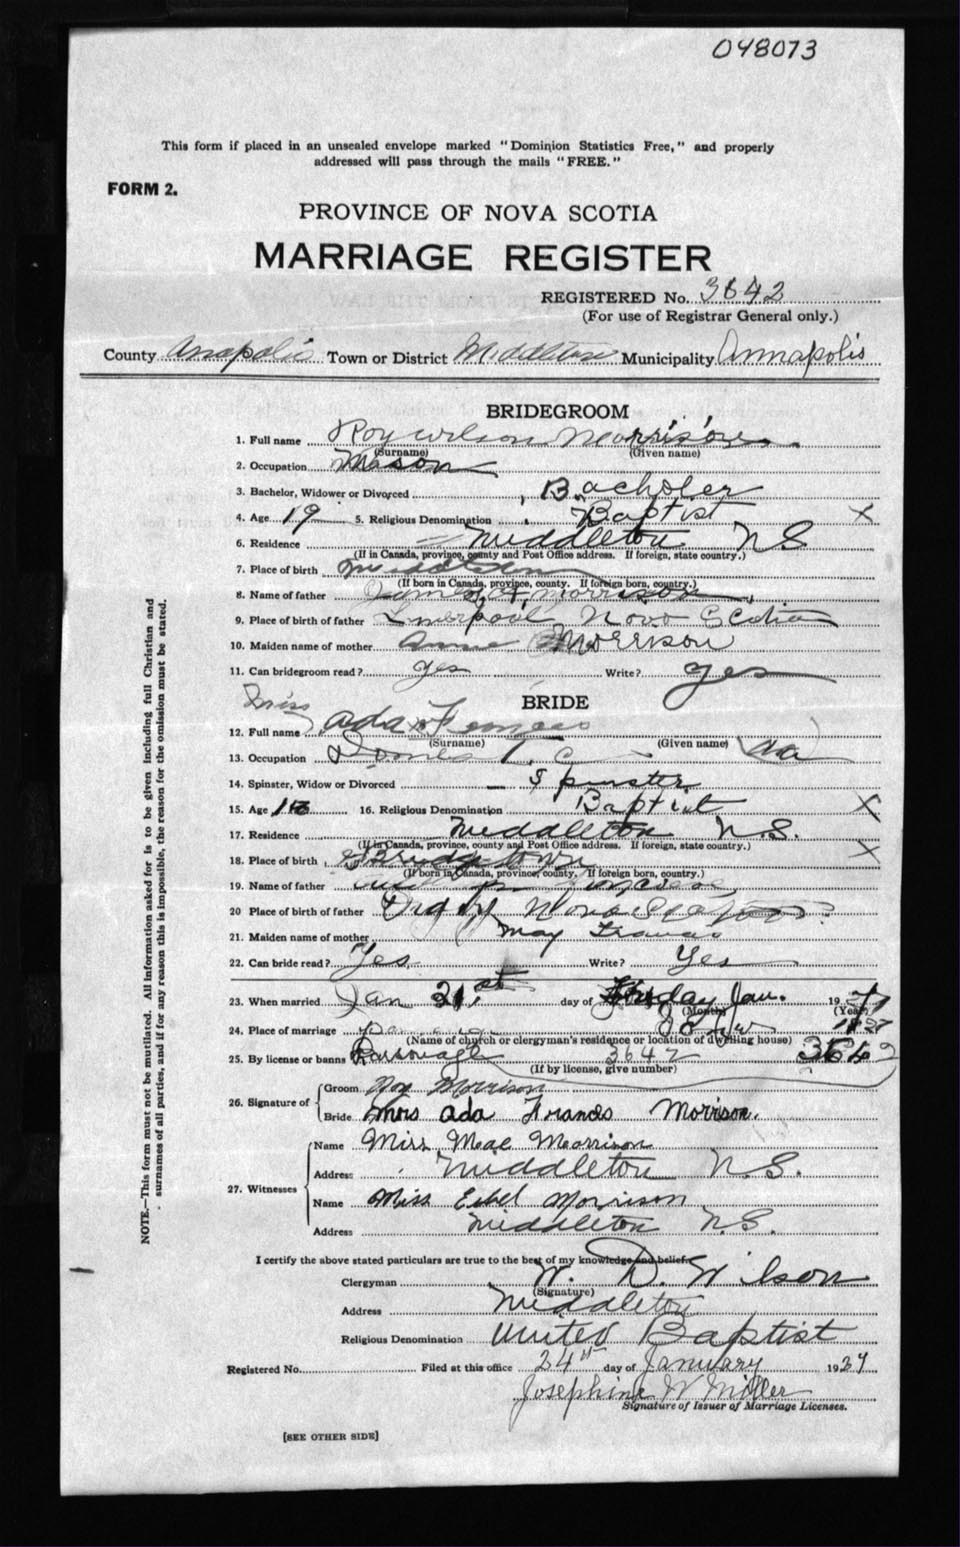 048073
This form if placed in an unsealed envelope marked "Dominion Statistics Free," and properly
addressed will pass through the mails "FREE."
FORM 2.
PROVINCE OF NOVA SCOTIA
MARRIAGE REGISTER
REGISTERED No. 3642
(For use of Registrar General only.)
County Anapolis Town or District Middleton Municipality Annapolis
BRIDEGROOM
1. Full name Roy Wilson Morrison
(Surname) (Given name)
2. Occupation Mason
3. Bachelor, Widower or Divorced Bacholer
4. Age 19 5. Religious Denomination Baptist X
6. Residence Middleton N S
(If in Canada, province, county and Post Office address. If foreign, state country.)
7. Place of birth Middleton
(If born in Canada, province, county. If foreign born, country.)
8. Name of father James A. Morrison
9. Place of birth of father Liverpool Nova Scotia
10. Maiden name of mother Annie Morrison
11. Can bridegroom read? yes Write? yes
BRIDE
Miss
12. Full name Ada
(Surname) (Given name) Ada
13. Occupation
14. Spinster, Widow or Divorced Spinster
15. Age 16. Religious Denomination Baptist X
17. Residence Middleton N.S.
(If in Canada, province, county and Post Office address. If foreign, state country.)
18. Place of birth Bridgetown X
(If born in Canada, province, county. If foreign born, country.)
19. Name of father
20 Place of birth of father Digby Nova
21. Maiden name of mother May Francis
22. Can bride read? Yes Write? Yes
23. When married Jan 21st day of Jan. 19
(Month) (Year)
24. Place of marriage 1927
(Name of church or clergyman's residence or location of dwelling house)
25. By license or banns 3642
(If by license, give number)
26. Signature of Groom Roy Morrison
Bride Mrs Ada Frances Morrison.
27. Witnesses Name Miss Mae Morrison
Address Middleton N.S.
Name Miss Ethel Morrison
Address Middleton N.S.
I certify the above stated particulars are true to the best of my knowledge and belief.
Clergyman W. D. Wilson
(Signature)
Address Middleton
Religious Denomination United Baptist
Registered No. Filed at this office 24th day of January 1927
Josephine W Miller
Signature of Issuer of Marriage Licenses.
[SEE OTHER SIDE]
NOTE.—This form must not be mutilated. All information asked for is to be given including full Christian and
surnames of all parties, and if for any reason this is impossible, the reason for the omission must be stated.